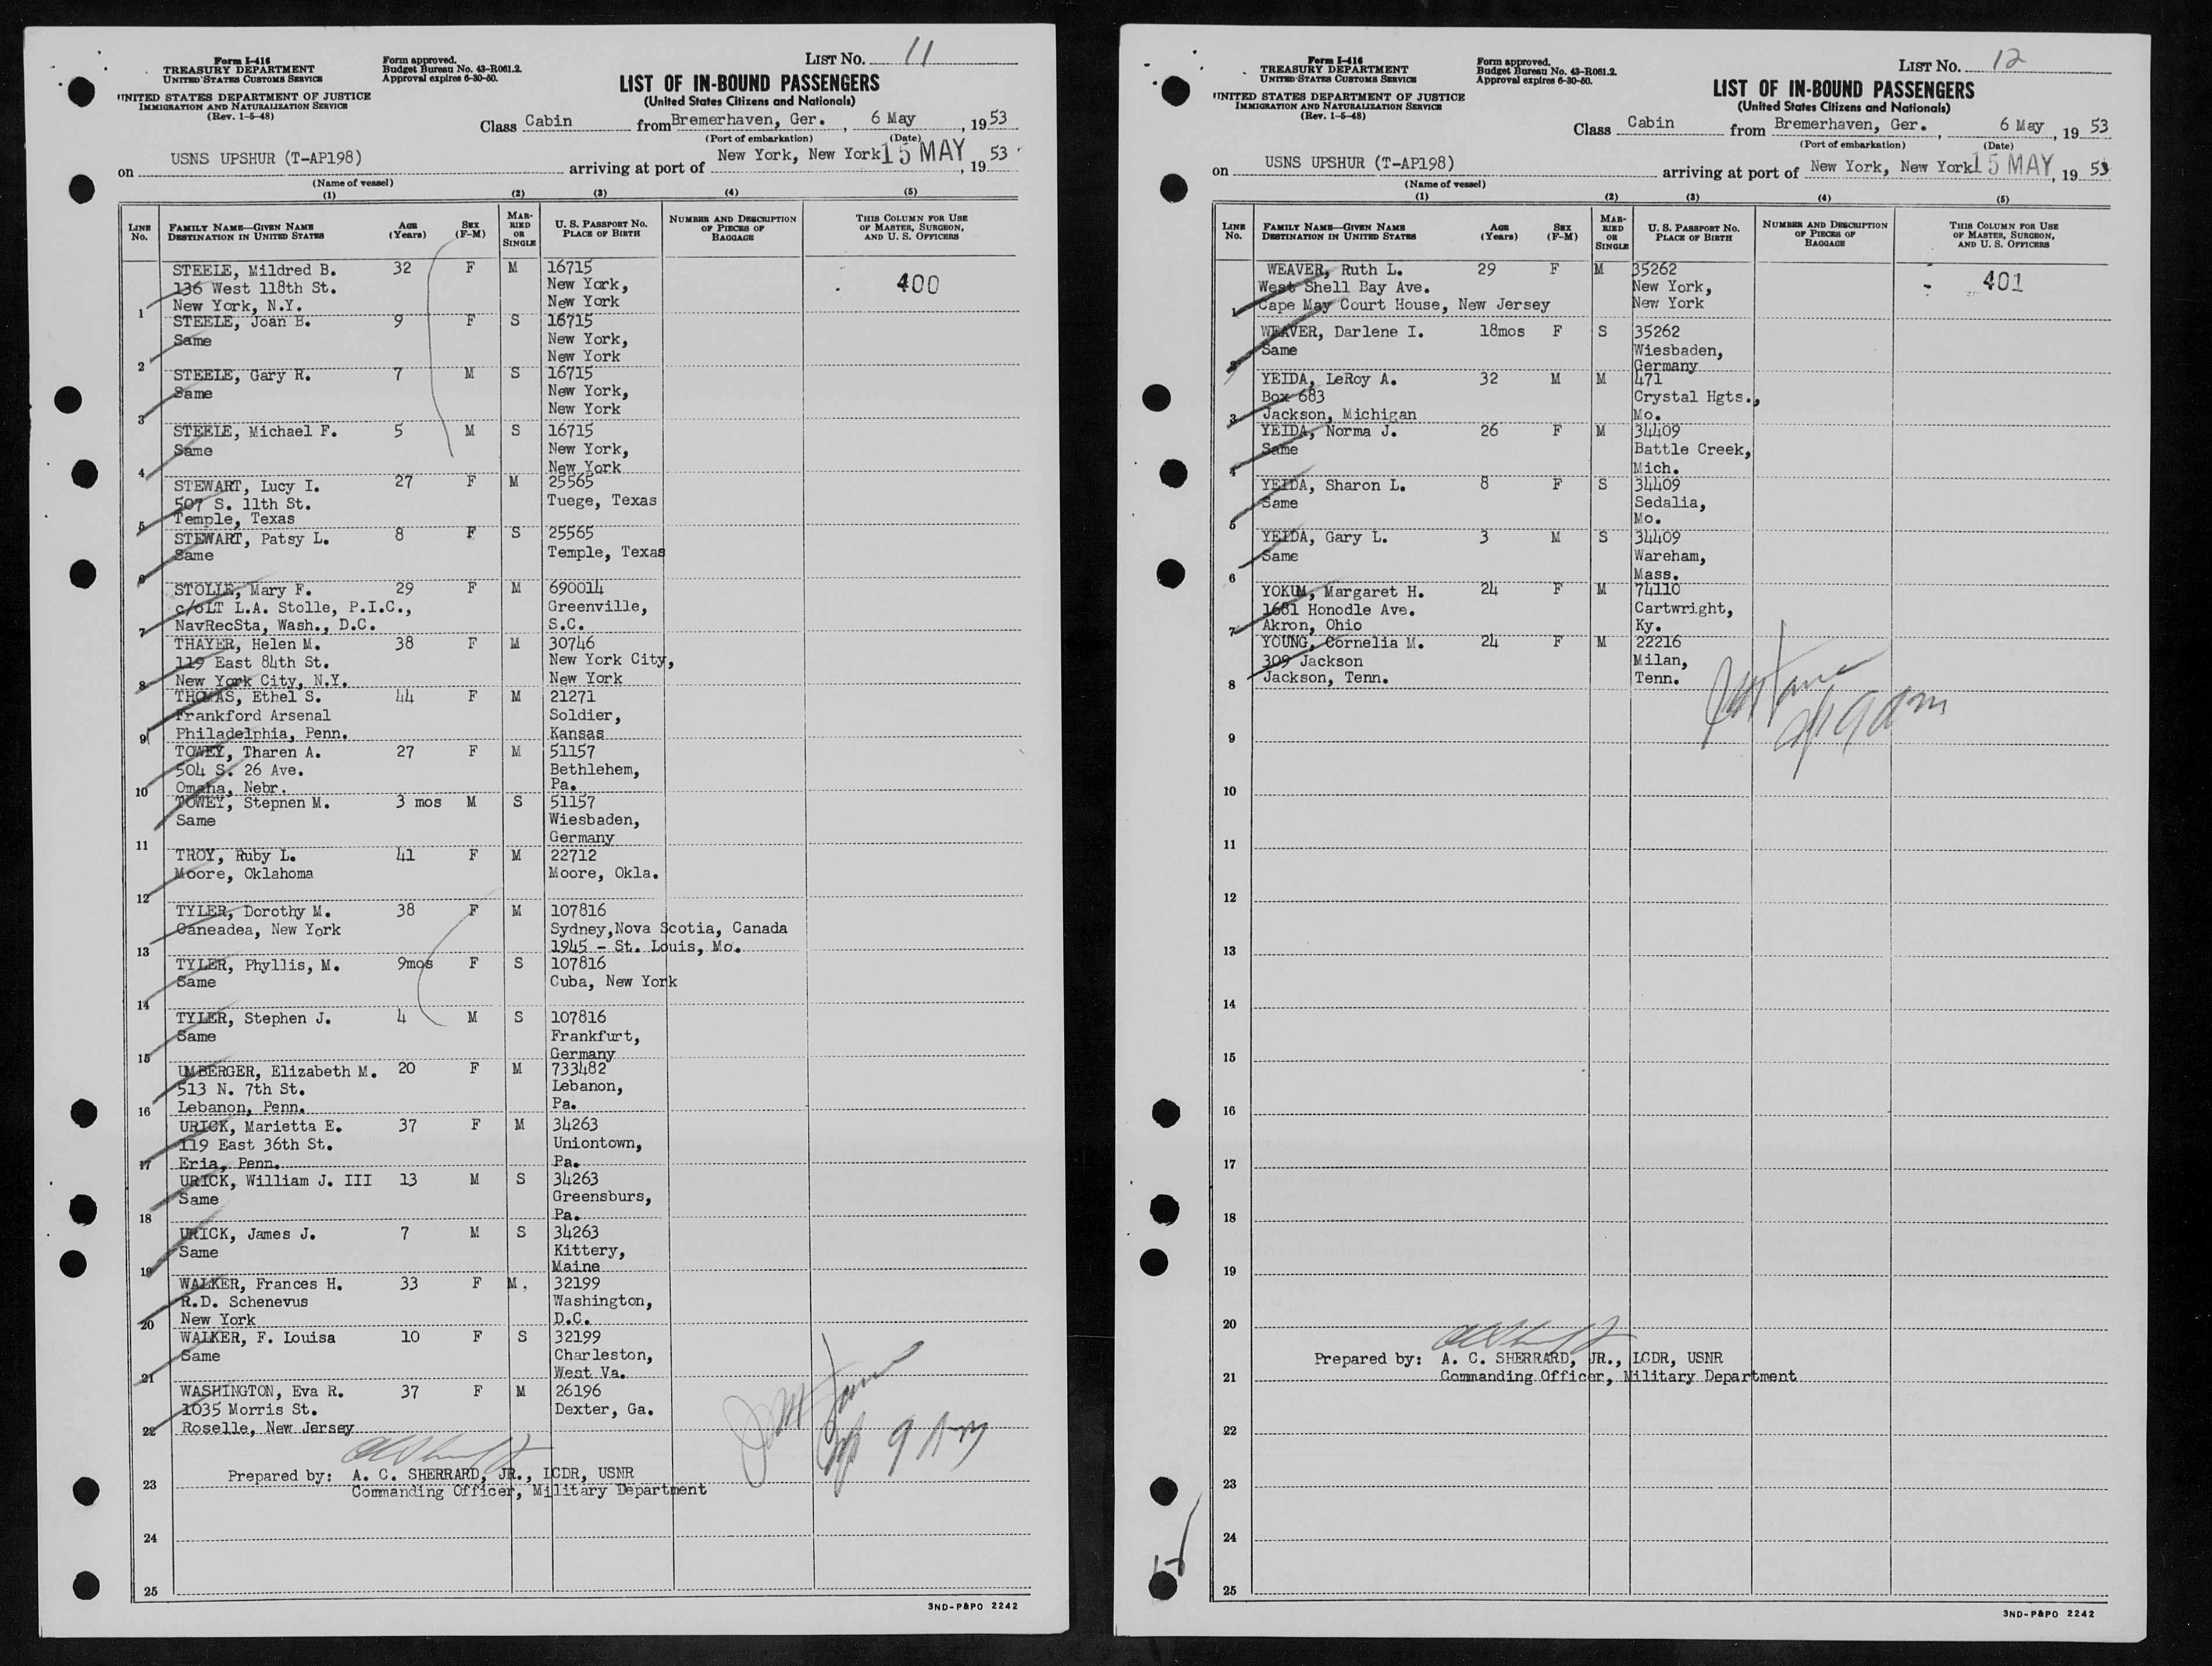 Form I-416
TREASURY DEPARTMENT
UNITED STATES CUSTOMS SERVICE
UNITED STATES DEPARTMENT OF JUSTICE
IMMIGRATION AND NATURALIZATION SERVICE
(Rev. 1-5-48)
Form approved.
Budget Bureau No. 43-R061.2.
Approval expires 6-30-50.
LIST NO. 11
LIST OF IN-BOUND PASSENGERS
(United States Citizens and Nationals)
Class Cabin from Bremerhaven, Ger., 6 May, 1953
(Port of embarkation) (Date)
on USNS UPSHUR (T-AP198) arriving at port of New York, New York 15 MAY, 1953
(Name of vessel)
(1) (2) (3) (4) (5)
LINE No. FAMILY NAME—GIVEN NAME DESTINATION IN UNITED STATES AGE (Years) SEX (F-M) MARRIED OR SINGLE U. S. PASSPORT NO. PLACE OF BIRTH NUMBER AND DESCRIPTION OF PIECES OF BAGGAGE THIS COLUMN FOR USE OF MASTER, SURGEON, AND U. S. OFFICERS
STEELE, Mildred B. 32 F M 16715 400
136 West 118th St. New York,
1 New York, N.Y. New York
STEELE, Joan B. 9 F S 16715
Same New York,
2 New York
STEELE, Gary R. 7 M S 16715
Same New York,
3 New York
STEELE, Michael F. 5 M S 16715
Same New York,
4 New York
STEWART, Lucy I. 27 F M 25565
507 S. 11th St. Tuege, Texas
5 Temple, Texas
STEWART, Patsy L. 8 F S 25565
Same Temple, Texas
6
STOLLE, Mary F. 29 F M 690014
c/oLT L.A. Stolle, P.I.C., Greenville,
7 NavRecSta, Wash., D.C. S.C.
THAYER, Helen M. 38 F M 30746
119 East 84th St. New York City,
8 New York City, N.Y. New York
THOMAS, Ethel S. 44 F M 21271
Frankford Arsenal Soldier,
9 Philadelphia, Penn. Kansas
TOWEY, Tharen A. 27 F M 51157
504 S. 26 Ave. Bethlehem,
10 Omaha, Nebr. Pa.
TOWEY, Stepnen M. 3 mos M S 51157
Same Wiesbaden,
11 Germany
TROY, Ruby L. 41 F M 22712
Moore, Oklahoma Moore, Okla.
12
TYLER, Dorothy M. 38 F M 107816
Caneadea, New York Sydney,Nova Scotia, Canada
13 1945 - St. Louis, Mo.
TYLER, Phyllis, M. 9mos F S 107816
Same Cuba, New York
14
TYLER, Stephen J. 4 M S 107816
Same Frankfurt,
15 Germany
UMBERGER, Elizabeth M. 20 F M 733482
513 N. 7th St. Lebanon,
16 Lebanon, Penn. Pa.
URICK, Marietta E. 37 F M 34263
119 East 36th St. Uniontown,
17 Eria, Penn. Pa.
URICK, William J. III 13 M S 34263
Same Greensburs,
18 Pa.
URICK, James J. 7 M S 34263
Same Kittery,
19 Maine
WALKER, Frances H. 33 F M. 32199
R.D. Schenevus Washington,
20 New York D.C.
WALKER, F. Louisa 10 F S 32199
Same Charleston,
21 West Va.
WASHINGTON, Eva R. 37 F M 26196
1035 Morris St. Dexter, Ga.
22 Roselle, New Jersey
Prepared by: A. C. SHERRARD, JR., LCDR, USNR
23 Commanding Officer, Military Department
24
25
3ND-P&PO 2242
Form I-416
TREASURY DEPARTMENT
UNITED STATES CUSTOMS SERVICE
UNITED STATES DEPARTMENT OF JUSTICE
IMMIGRATION AND NATURALIZATION SERVICE
(Rev. 1-5-48)
Form approved.
Budget Bureau No. 43-R061.2.
Approval expires 6-30-50.
LIST NO. 12
LIST OF IN-BOUND PASSENGERS
(United States Citizens and Nationals)
Class Cabin from Bremerhaven, Ger., 6 May, 1953
(Port of embarkation) (Date)
on USNS UPSHUR (T-AP198) arriving at port of New York, New York 15 MAY, 1953
(Name of vessel)
(1) (2) (3) (4) (5)
LINE No. FAMILY NAME—GIVEN NAME DESTINATION IN UNITED STATES AGE (Years) SEX (F-M) MARRIED OR SINGLE U. S. PASSPORT NO. PLACE OF BIRTH NUMBER AND DESCRIPTION OF PIECES OF BAGGAGE THIS COLUMN FOR USE OF MASTER, SURGEON, AND U. S. OFFICERS
WEAVER, Ruth L. 29 F M 35262 401
West Shell Bay Ave. New York,
1 Cape May Court House, New Jersey New York
WEAVER, Darlene I. 18mos F S 35262
Same Wiesbaden,
2 Germany
YEIDA, LeRoy A. 32 M M 471
Box 683 Crystal Hgts.,
3 Jackson, Michigan Mo.
YEIDA, Norma J. 26 F M 34409
Same Battle Creek,
4 Mich.
YEIDA, Sharon L. 8 F S 34409
Same Sedalia,
5 Mo.
YEIDA, Gary L. 3 M S 34409
Same Wareham,
6 Mass.
YOKUM, Margaret H. 24 F M 74110
1681 Honodle Ave. Cartwright,
7 Akron, Ohio Ky.
YOUNG, Cornelia M. 24 F M 22216
309 Jackson Milan,
8 Jackson, Tenn. Tenn.
9
10
11
12
13
14
15
16
17
18
19
20
Prepared by: A. C. SHERRARD, JR., LCDR, USNR
21 Commanding Officer, Military Department
22
23
24
25
3ND-P&PO 2242